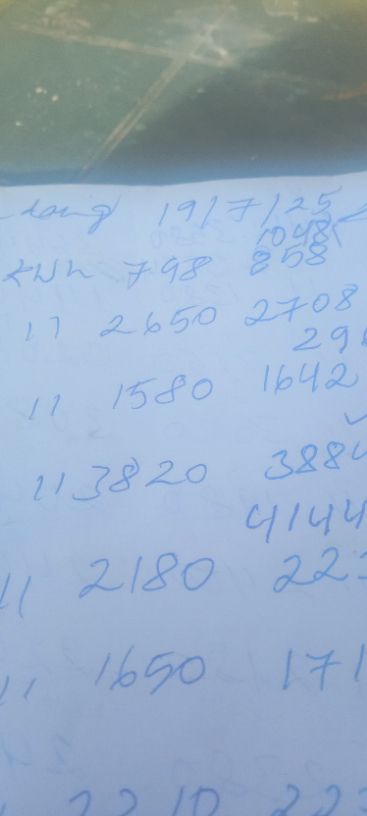 19/7/25
1048
KWH 798 858
11 2650 2708
29
11 1580 1642
11 3820 388
4144
11 2180 22
11 1650 171
2210 22